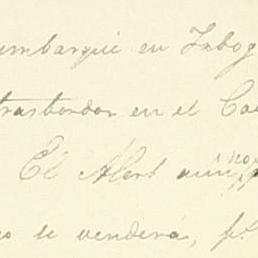 embarqué en Tabog
trasbordar en el Ca
El Alert aún no
se venderá, p.